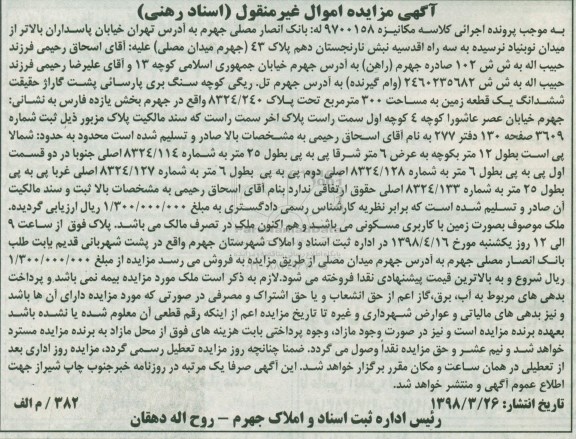 آگهی مزایده اموال غیرمنقول (اسناد رهنی)
به موجب پرونده اجرائی کلاسه مکانیزه ۹۷۰۰۱۵۸ له: بانک انصار مصلی جهرم به آدرس تهران خیابان پاسداران بالاتر از
میدان نوبنیاد نرسیده به سه راه اقدسیه نبش نارنجستان دهم پلاک ۴۳ (جهرم میدان مصلی) علیه: آقای اسحاق رحیمی فرزند
حبیب اله به ش ش ۱۰۲ صادره جهرم (راهن) به آدرس جهرم خیابان جمهوری اسلامی کوچه ۱۳ و آقای علیرضا رحیمی فرزند
حبیب اله به ش ش ۲۴۶۰۲۳۵۶۸۲ (وام گیرنده) به آدرس جهرم تل. ریگی کوچه سنگ بری پارسائی پشت گاراژ حقیقت
ششدانگ یک قطعه زمین به مساحت ۳۰۰ مترمربع تحت پلاک ۸۳۲۴/۲۴۰ واقع در جهرم بخش یازده فارس به نشانی:
جهرم خیابان عصر عاشورا کوچه ۴ کوچه اول سمت راست پلاک آخر سمت راست که سند مالکیت پلاک مزبور ذیل ثبت شماره
۳۶۰۹ صفحه ۱۳۰ دفتر ۲۷۷ به نام آقای اسحاق رحیمی به مشخصات بالا صادر و تسلیم شده است محدود به حدود: شمالا
پی است بطول ۱۲ متر بکوچه به عرض ۶ متر شرقا پی به پی بطول ۲۵ متر به شماره ۸۳۲۴/۱۱۴ اصلی جنوبا در دو قسمت
اول پی به پی بطول ۶ متر به شماره ۸۳۲۴/۱۲۸ اصلی دوم پی به پی بطول ۶ متر به شماره ۸۳۲۴/۱۲۷ اصلی غربا پی به پی
بطول ۲۵ متر به شماره ۸۳۲۴/۱۳۳ اصلی حقوق ارتفاقی ندارد بنام آقای اسحاق رحیمی به مشخصات بالا ثبت و سند مالکیت
آن صادر و تسلیم شده است که برابر نظریه کارشناس رسمی دادگستری به مبلغ ۱/۳۰۰/۰۰۰/۰۰۰ ریال ارزیابی گردیده.
ملک موصوف بصورت زمین با کاربری مسکونی می باشد و هم اکنون ملک در تصرف مالک می باشد. پلاک فوق از ساعت ۹
الی ۱۲ روز یکشنبه مورخ ۱۳۹۸/۴/۱۶ در اداره ثبت اسناد و املاک شهرستان جهرم واقع در پشت شهربانی قدیم بابت طلب
بانک انصار مصلی جهرم به آدرس جهرم میدان مصلی از طریق مزایده به فروش می رسد مزایده از مبلغ ۱/۳۰۰/۰۰۰/۰۰۰
ریال شروع و به بالاترین قیمت پیشنهادی نقدا فروخته می شود. لازم به ذکر است ملک مورد مزایده بیمه نمی باشد و پرداخت
بدهی های مربوط به آب، برق، گاز اعم از حق انشعاب و یا حق اشتراک و مصرفی در صورتی که مورد مزایده دارای آن ها باشد
و نیز بدهی های مالیاتی و عوارض شهرداری و غیره تا تاریخ مزایده اعم از اینکه رقم قطعی آن معلوم شده یا نشده باشد
بعهده برنده مزایده است و نیز در صورت وجود مازاد، وجوه پرداختی بابت هزینه های فوق از محل مازاد به برنده مزایده مسترد
خواهد شد و نیم عشر و حق مزایده نقدأ وصول می گردد. ضمنا چنانچه روز مزایده تعطیل رسمی گردد، مزایده روز اداری بعد
از تعطیلی در همان ساعت و مکان مقرر برگزار خواهد شد. این آگهی صرفا یک مرتبه در روزنامه خبرجنوب چاپ شیراز جهت
اطلاع عموم آگهی و منتشر خواهد شد.
تاریخ انتشار: ۱۳۹۸/۳/۲۶
۳۸۲ / م الف
رئیس اداره ثبت اسناد و املاک جهرم – روح اله دهقان